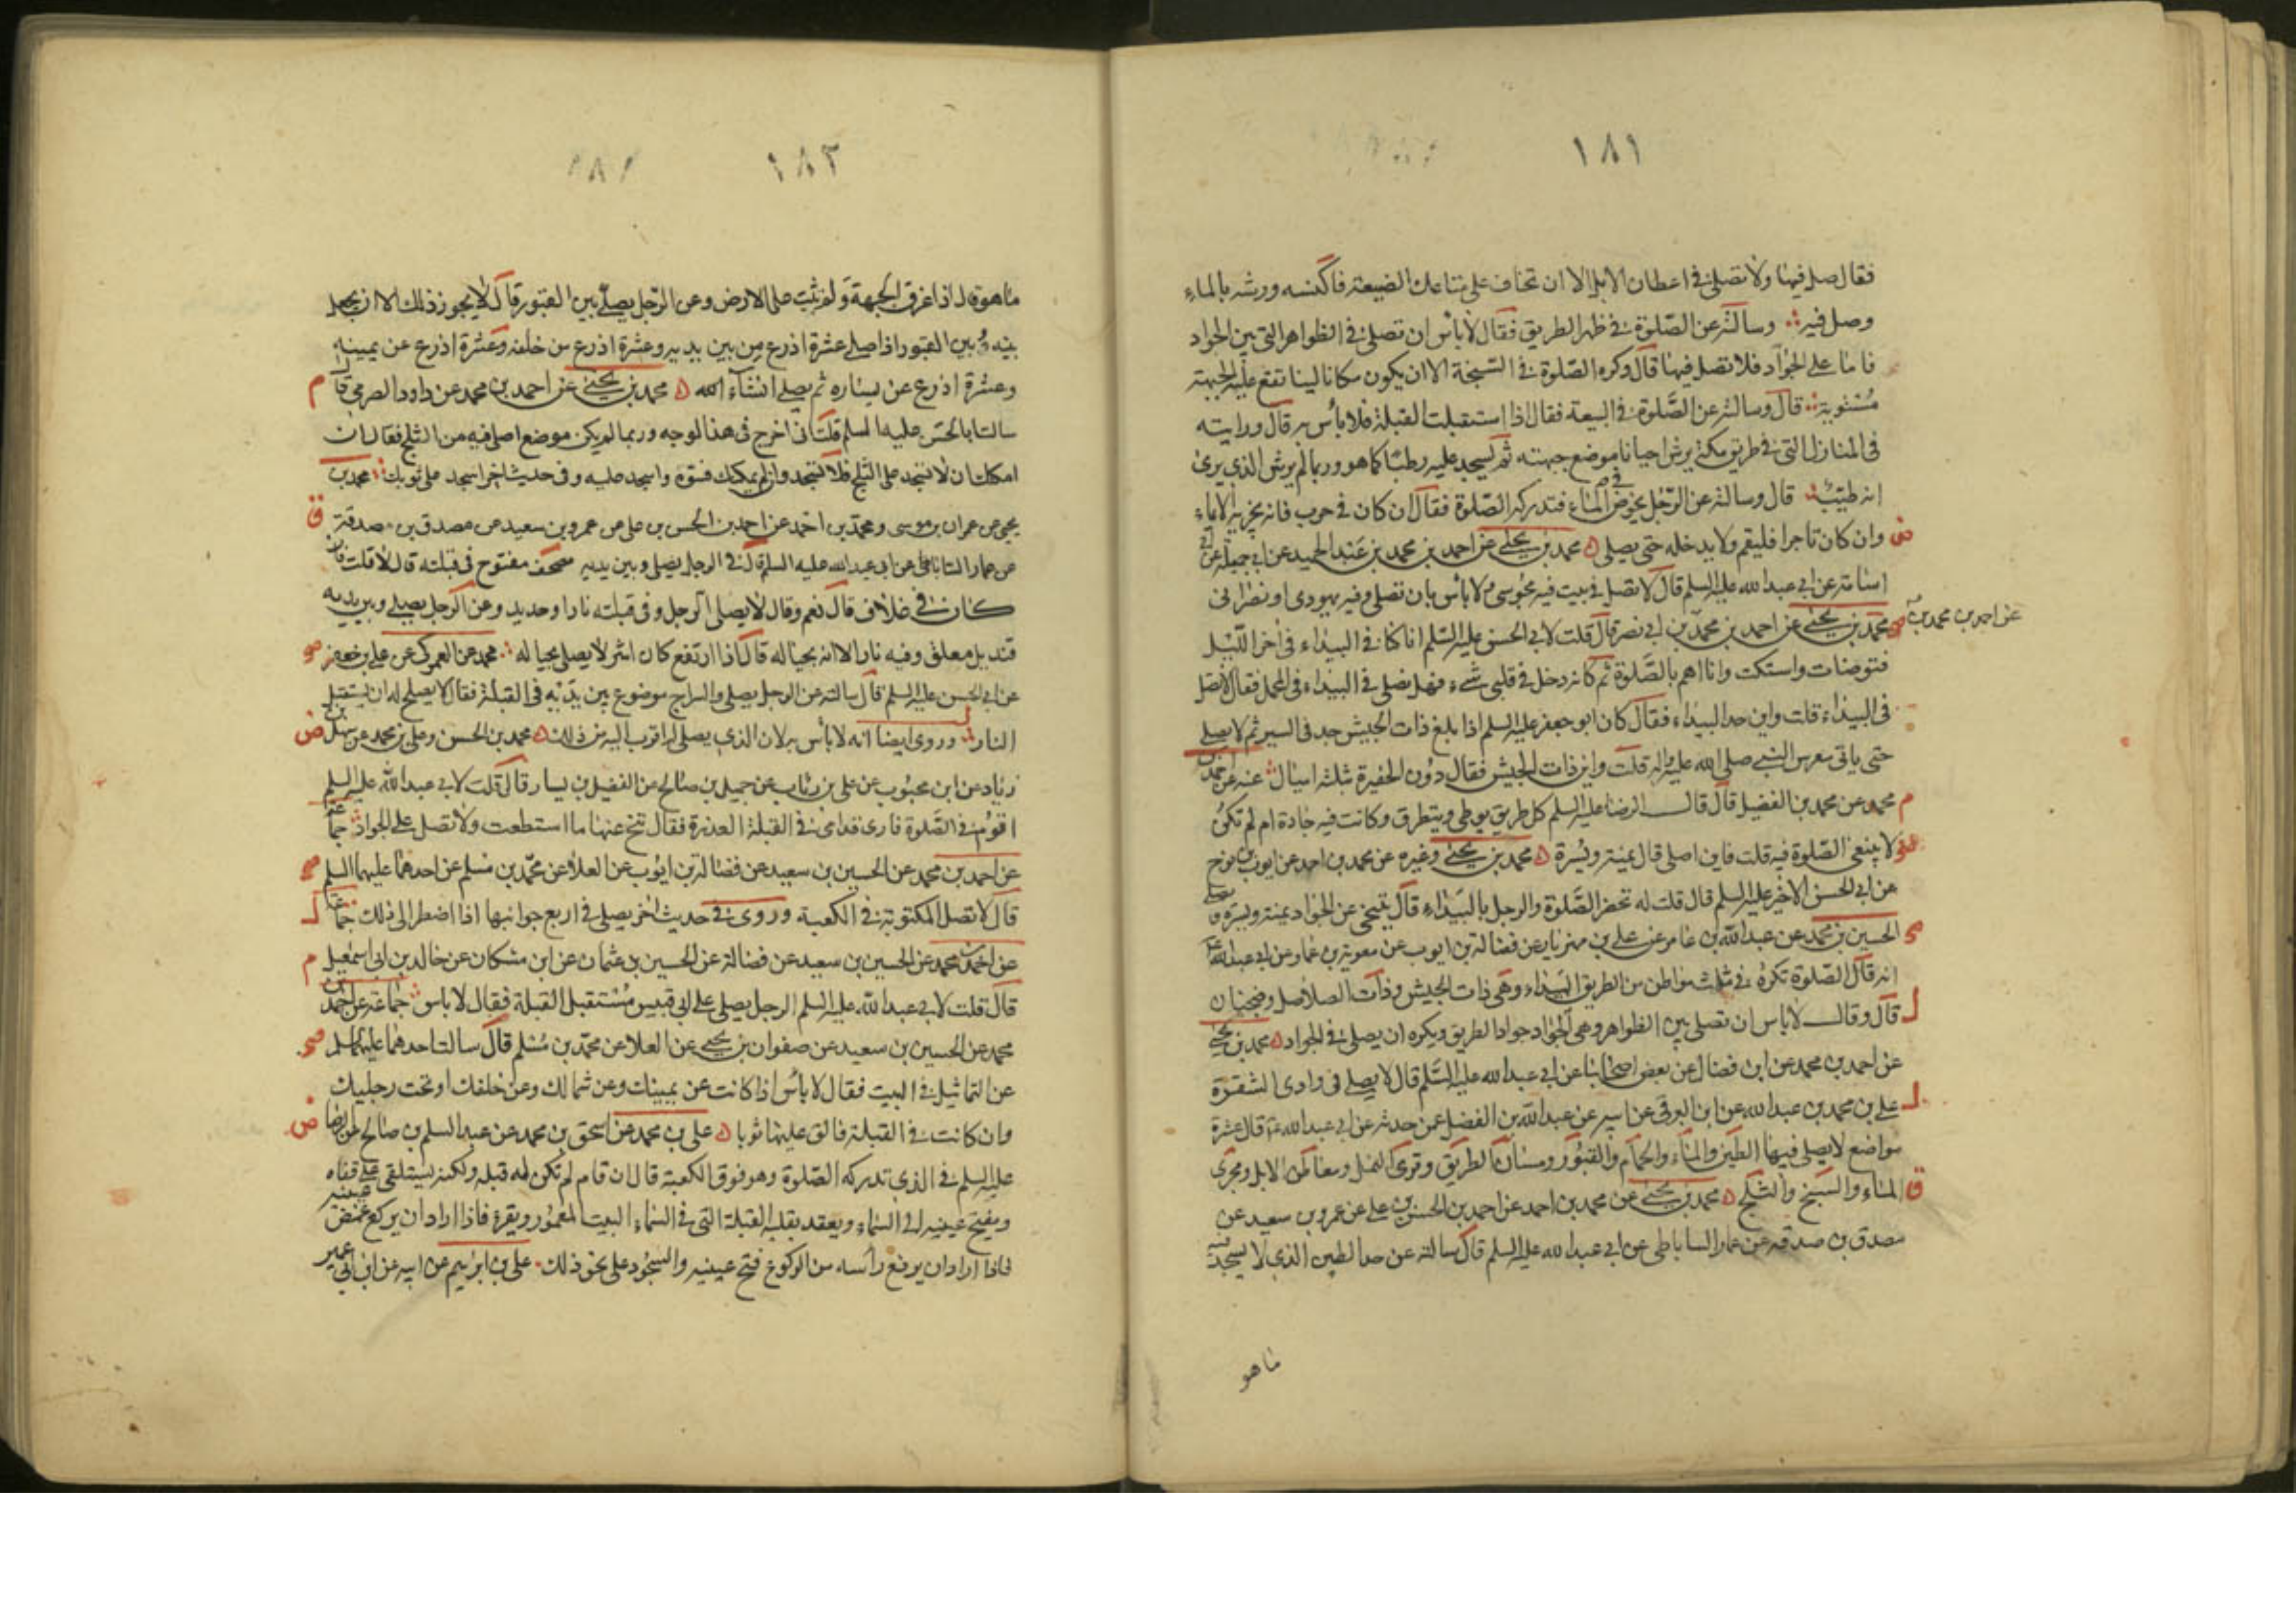 ١٨١
فقال صل فيها ولا تصلى في اعطان الابل الا ان تخاف على متاعك الضيعة فاكنسه ورشه بالماء
وصل فيه وسالته عن الصلوة في ظهر الطريق فقال لا باس ان تصلى في الظواهر التى بين الجواد
فاما على الجواد فلا تصل فيها قال وكره الصلوة في السبخة الا ان يكون مكانا لينا تقع عليه الجبهة
مستوية قال وسالته عن الصلوة في البيعة فقال اذا استقبلت القبلة فلا باس به قال ورايته
في المنازل التى في طريق مكة يرش احيانا موضع جبهته ثم يسجد عليه رطبا كما هو وربما لم يرش الذي يرى
انه طيب قال وسالته عن الرجل يخوض الماء فتدركه الصلوة فقال ان كان في حرب فانه يجزيه الايماء
وان كان تاجرا فليقم ولا يدخله حتى يصلى محمد بن يحيى عن احمد بن محمد بن عبد الحميد عن ابي جميلة عن ابي
اسامة عن ابي عبد الله عليه السلم قال لا تصل في بيت فيه مجوسى ولا باس بان تصلى وفيه يهودى او نصرانى
محمد بن يحيى عن احمد بن محمد بن ابي نصر قال قلت لابي الحسن عليه السلم انا كنا في البيداء في اخر الليل
عن احمد بن محمد بن
فتوضات واستكت وانا اهم بالصلوة ثم كانه دخل في قلبى شىء فهل نصلى في البيداء في المحمل فقال لا تصل
في البيداء قلت واين حد البيداء فقال كان ابو جعفر عليه السلم اذا بلغ ذات الجيش جد في السير ثم لا يصلى
حتى ياتى معرس النبي صلى الله عليه واله قلت واين ذات الجيش فقال دون الحفيرة بثلثة اميال عنه عن احمد بن
محمد عن محمد بن الفضيل قال قال الرضا عليه السلم كل طريق يوطى ويتطرق وكانت فيه جادة ام لم تكن
لا ينبغى الصلوة فيه قلت فاين اصلى قال يمنة ويسرة محمد بن يحيى وغيره عن محمد بن احمد عن ايوب بن نوح
عن ابي الحسن الاخير عليه السلم قال قلت له تحضر الصلوة والرجل بالبيداء قال يتنحى عن الجواد يمنة ويسرة ويصلى
الحسين بن محمد عن عبد الله بن عامر عن على بن مهزيار عن فضالة بن ايوب عن معوية بن عمار عن ابي عبد الله
انه قال الصلوة تكره في ثلث مواطن من الطريق البيداء وهى ذات الجيش وذات الصلاصل وضجنان
قال وقال لا باس ان تصلى بين الظواهر وهى الجواد جواد الطريق ويكره ان يصلى في الجواد محمد بن يحيى
عن احمد بن محمد عن ابن فضال عن بعض اصحابنا عن ابي عبد الله عليه السلم قال لا يصلى في وادى الشقرة
على بن محمد بن عبد الله عن ابن البرقى عن ابيه عن عبد الله بن الفضل عمن حدثه عن ابي عبد الله قال عشرة
مواضع لا يصلى فيها الطين والماء والحمام والقبور ومسان الطريق وقرى النمل ومعاطن الابل ومجرى
الماء والسبخ والثلج محمد بن يحيى عن محمد بن احمد عن احمد بن الحسن بن على عن عمرو بن سعيد عن
مصدق بن صدقة عن عمار الساباطى عن ابي عبد الله عليه السلم قال سالته عن حد الطين الذي لا يسجد فيه
ما هو
١٨٢
ما هو قال اذا غرق الجبهة ولم تثبت على الارض وعن الرجل يصلى بين القبور قال لا يجوز ذلك الا ان يجعل
بينه وبين القبور اذا صلى عشرة اذرع من بين يديه وعشرة اذرع من خلفه وعشرة اذرع عن يمينه
وعشرة اذرع عن يساره ثم يصلى انشاء الله محمد بن يحيى عن احمد بن محمد عن داود الصرمى قال
سالت ابا الحسن عليه السلم قلت انى اخرج في هذا الوجه وربما لم يكن موضع اصلى فيه من الثلج فقال ان
امكنك ان لا تسجد على الثلج فلا تسجد وان لم يمكنك فسوه واسجد عليه وفي حديث اخر اسجد على ثوبك محمد بن
يحيى عن عمران بن موسى ومحمد بن احمد عن احمد بن الحسن بن على عن عمرو بن سعيد عن مصدق بن صدقة
عن عمار الساباطى عن ابي عبد الله عليه السلم قال في الرجل يصلى وبين يديه مصحف مفتوح في قبلته قال لا قلت فان
كان في غلاف قال نعم وقال لا يصلى الرجل وفى قبلته نار او حديد وعن الرجل يصلى وبين يديه
قنديل معلق وفيه نار الا انه بحياله قال اذا ارتفع كان اشر لا يصلى بحياله محمد عن العمركى عن على بن جعفر
عن ابي الحسن عليه السلم قال سالته عن الرجل يصلى والسراج موضوع بين يديه في القبلة فقال لا يصلح له ان يستقبل
النار وروى ايضا انه لا باس به لان الذي يصلى له اقرب اليه من ذلك محمد بن الحسن وعلى بن محمد عن سهل بن
زياد عن ابن محبوب عن على بن رئاب عن جميل بن صالح عن الفضيل بن يسار قال قلت لابي عبد الله عليه السلم
اقوم في الصلوة فارى قدامى في القبلة العذرة فقال تنح عنها ما استطعت ولا تصل على الجواد جماعة
عن احمد بن محمد عن الحسين بن سعيد عن فضالة بن ايوب عن العلا عن محمد بن مسلم عن احدهما عليهما السلم
قال لا تصل المكتوبة في الكعبة وروى في حديث اخر يصلى في اربع جوانبها اذا اضطر الى ذلك جماعة
عن احمد بن محمد عن الحسين بن سعيد عن فضالة عن الحسين بن عثمان عن ابن مسكان عن خالد بن ابي اسمعيل
قال قلت لابي عبد الله عليه السلم الرجل يصلى على ابي قبيس مستقبل القبلة فقال لا باس جماعة عن احمد بن
محمد عن الحسين بن سعيد عن صفوان بن يحيى عن العلا عن محمد بن مسلم قال سالت احدهما عليهما السلم
عن التماثيل في البيت فقال لا باس اذا كانت عن يمينك وعن شمالك وعن خلفك او تحت رجليك
وان كانت في القبلة فالق عليها ثوبا على بن محمد عن اسحق بن محمد عن عبد السلم بن صالح عن الرضا
عليه السلم في الذي تدركه الصلوة وهو فوق الكعبة قال ان قام لم تكن له قبلة ولكنه يستلقى على قفاه
ويفتح عينيه الى السماء ويعقد بقلبه القبلة التى في السماء البيت المعمور ويقرء فاذا اراد ان يركع غمض عينيه
فاذا اراد ان يرفع راسه من الركوع فتح عينيه والسجود على نحو ذلك على بن ابرهيم عن ابيه عن ابن ابي عمير